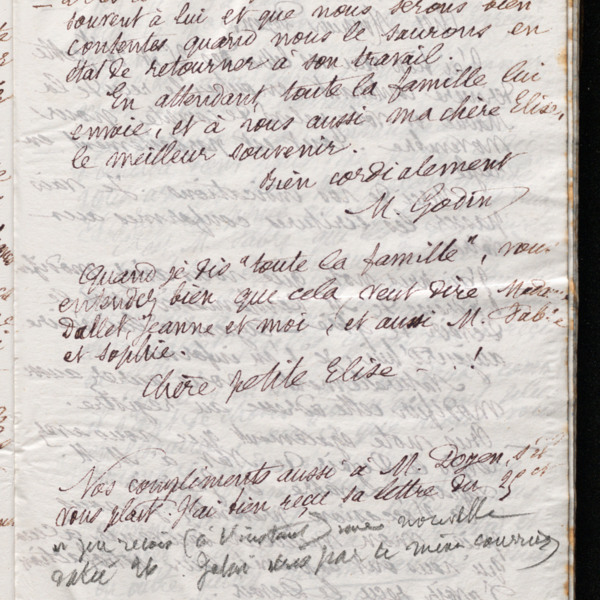 souvent à lui et que nous serons bien
contentes quand nous le saurons en
état de retourner à son travail.
En attendant toute la famille lui
envoie, et à vous aussi ma chère Elise,
le meilleur souvenir.
Bien cordialement
M. Godin
Quand je dis "toute la famille", vous
entendez bien que cela veut dire Madame
Dallet, Jeanne et moi, et aussi M. Fabre
et Sophie.
Chère petite Elise - . . !
Nos compliments aussi à M. Doyen, s'il
vous plait. J'ai bien reçu sa lettre du 25 et
et j'en reçois (à l'instant) une nouvelle
datée 26. par le même courrier